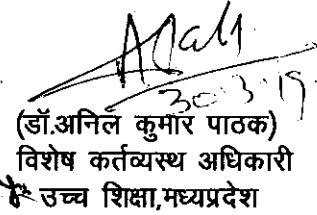 30.3.19
(डॉ.अनिल कुमार पाठक)
विशेष कर्तव्यस्थ अधिकारी
उच्च शिक्षा,मध्यप्रदेश